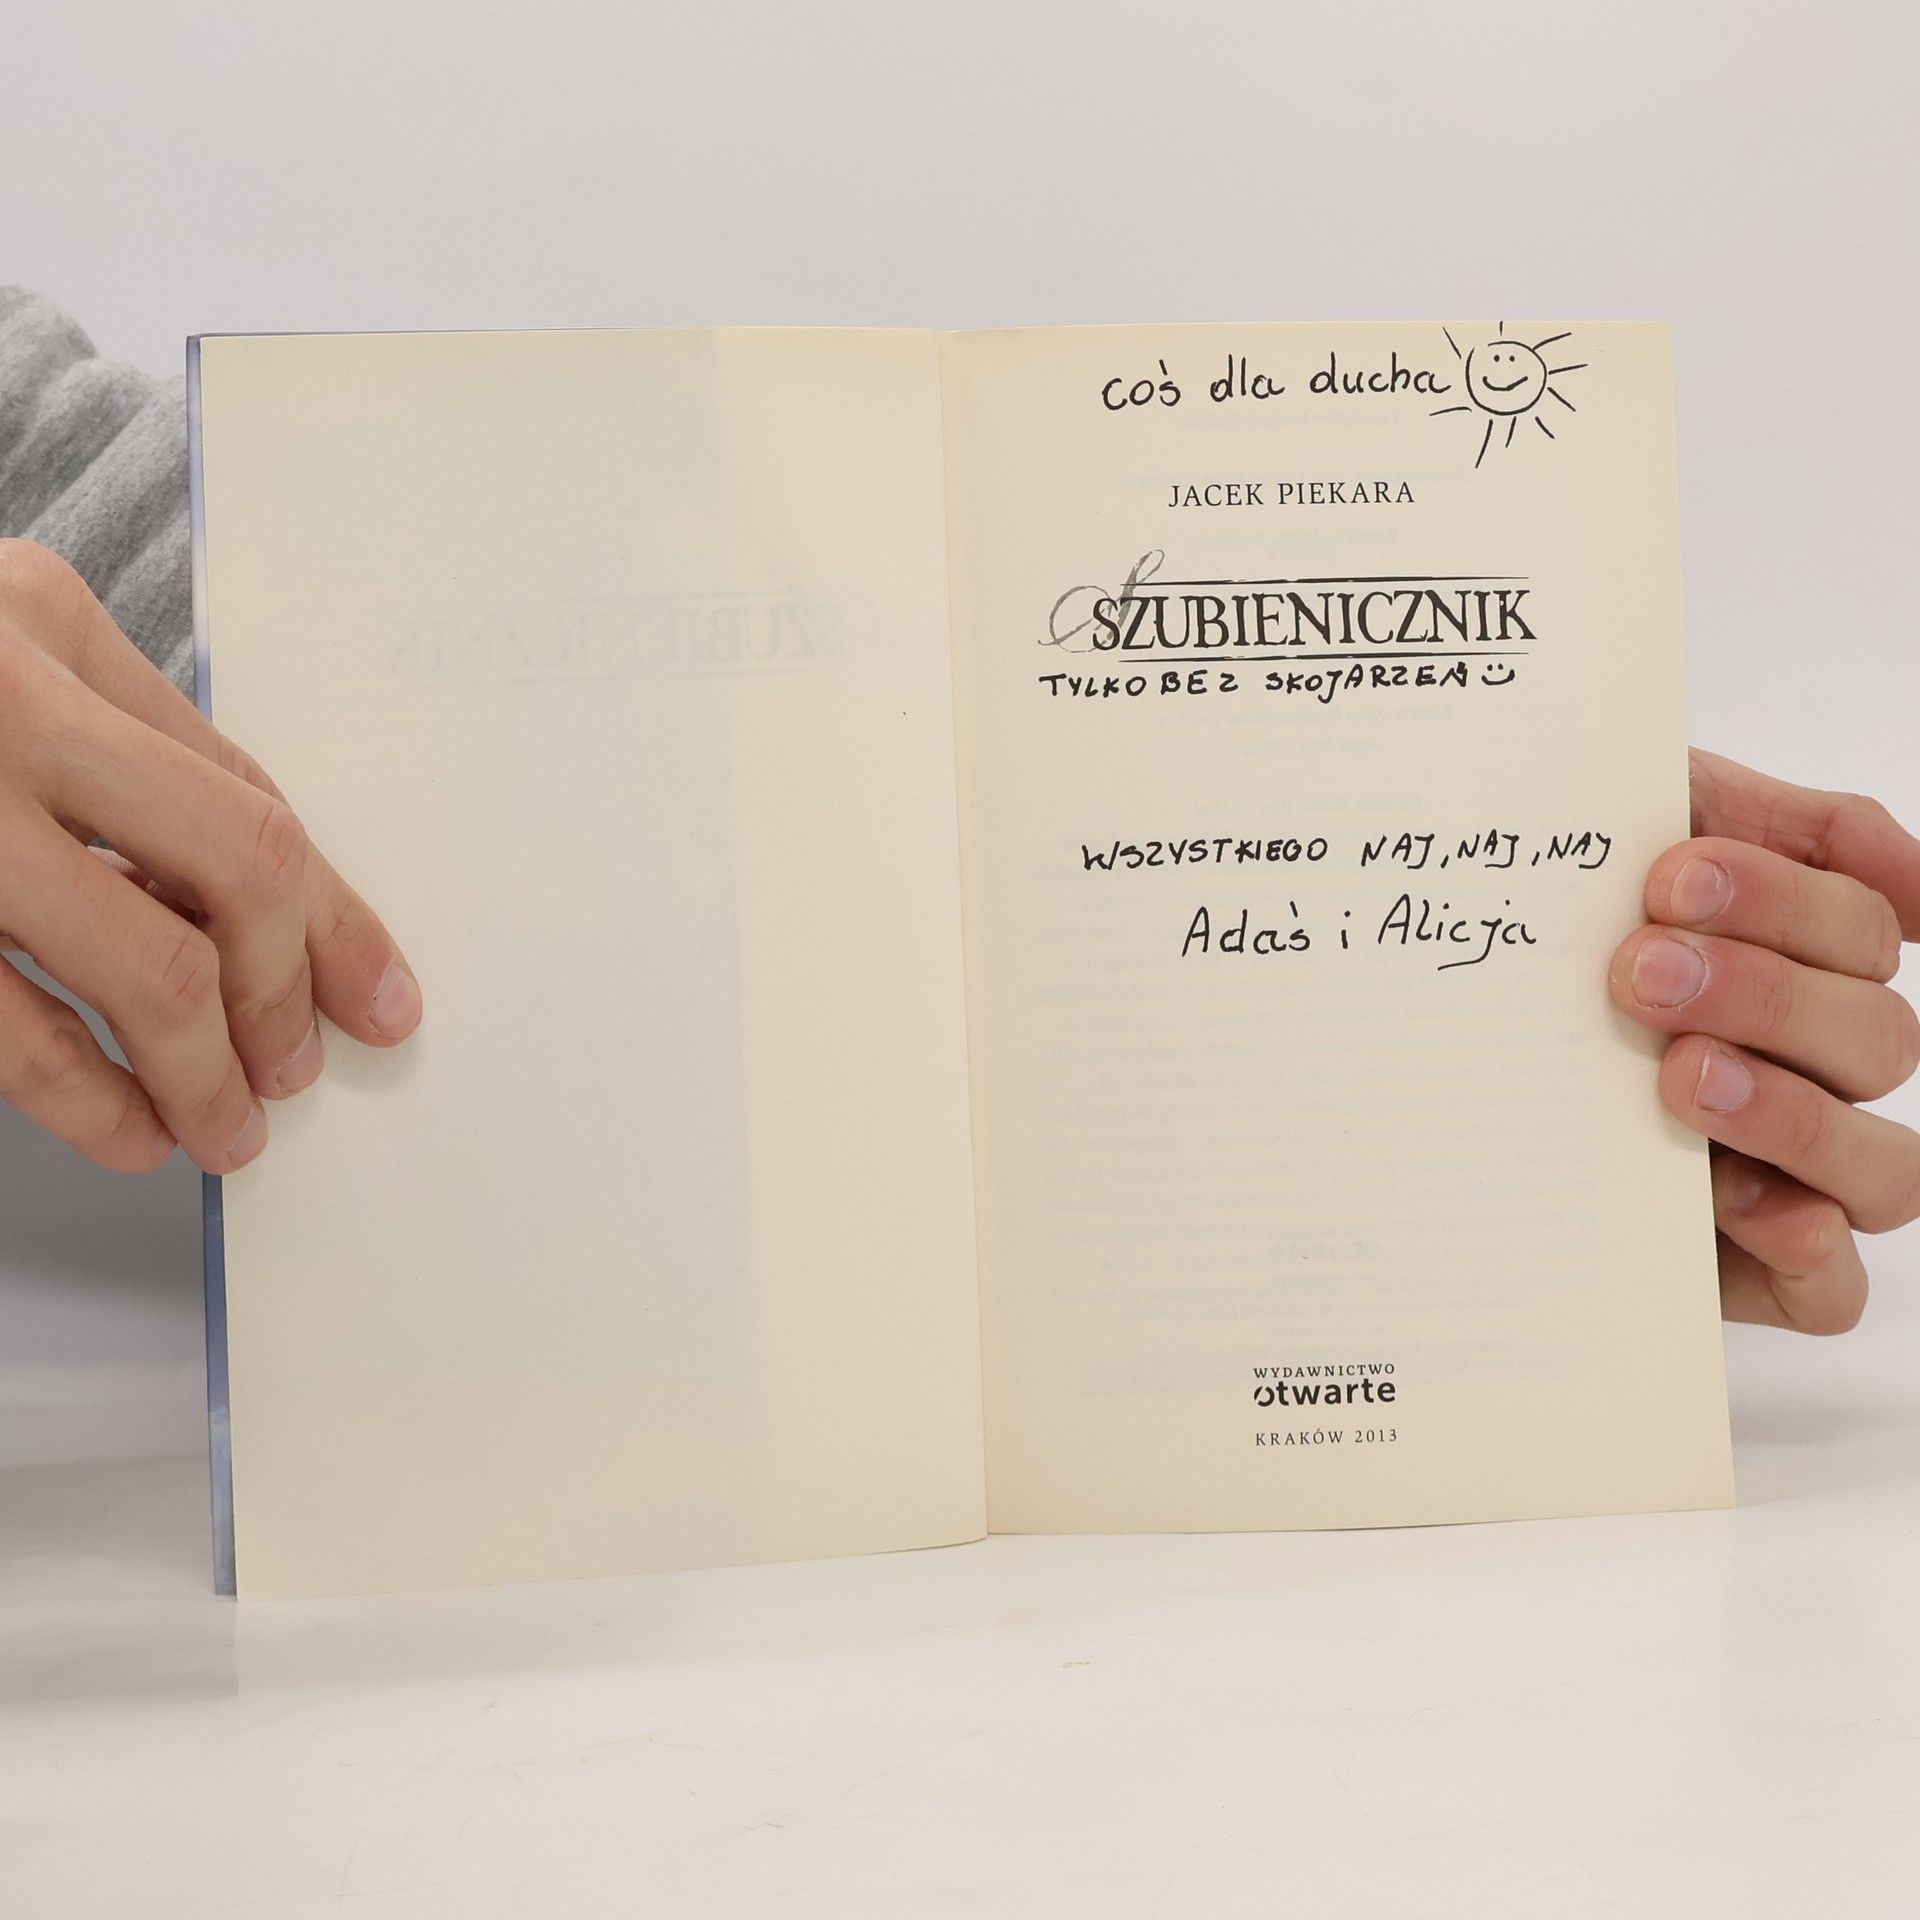 coś dla ducha
JACEK PIEKARA
SZUBIENICZNIK
TYLKO BEZ SKOJARZEŃ
WSZYSTKIEGO NAJ, NAJ, NAJ
Adaś i Alicja
WYDAWNICTWO
otwarte
KRAKÓW 2013